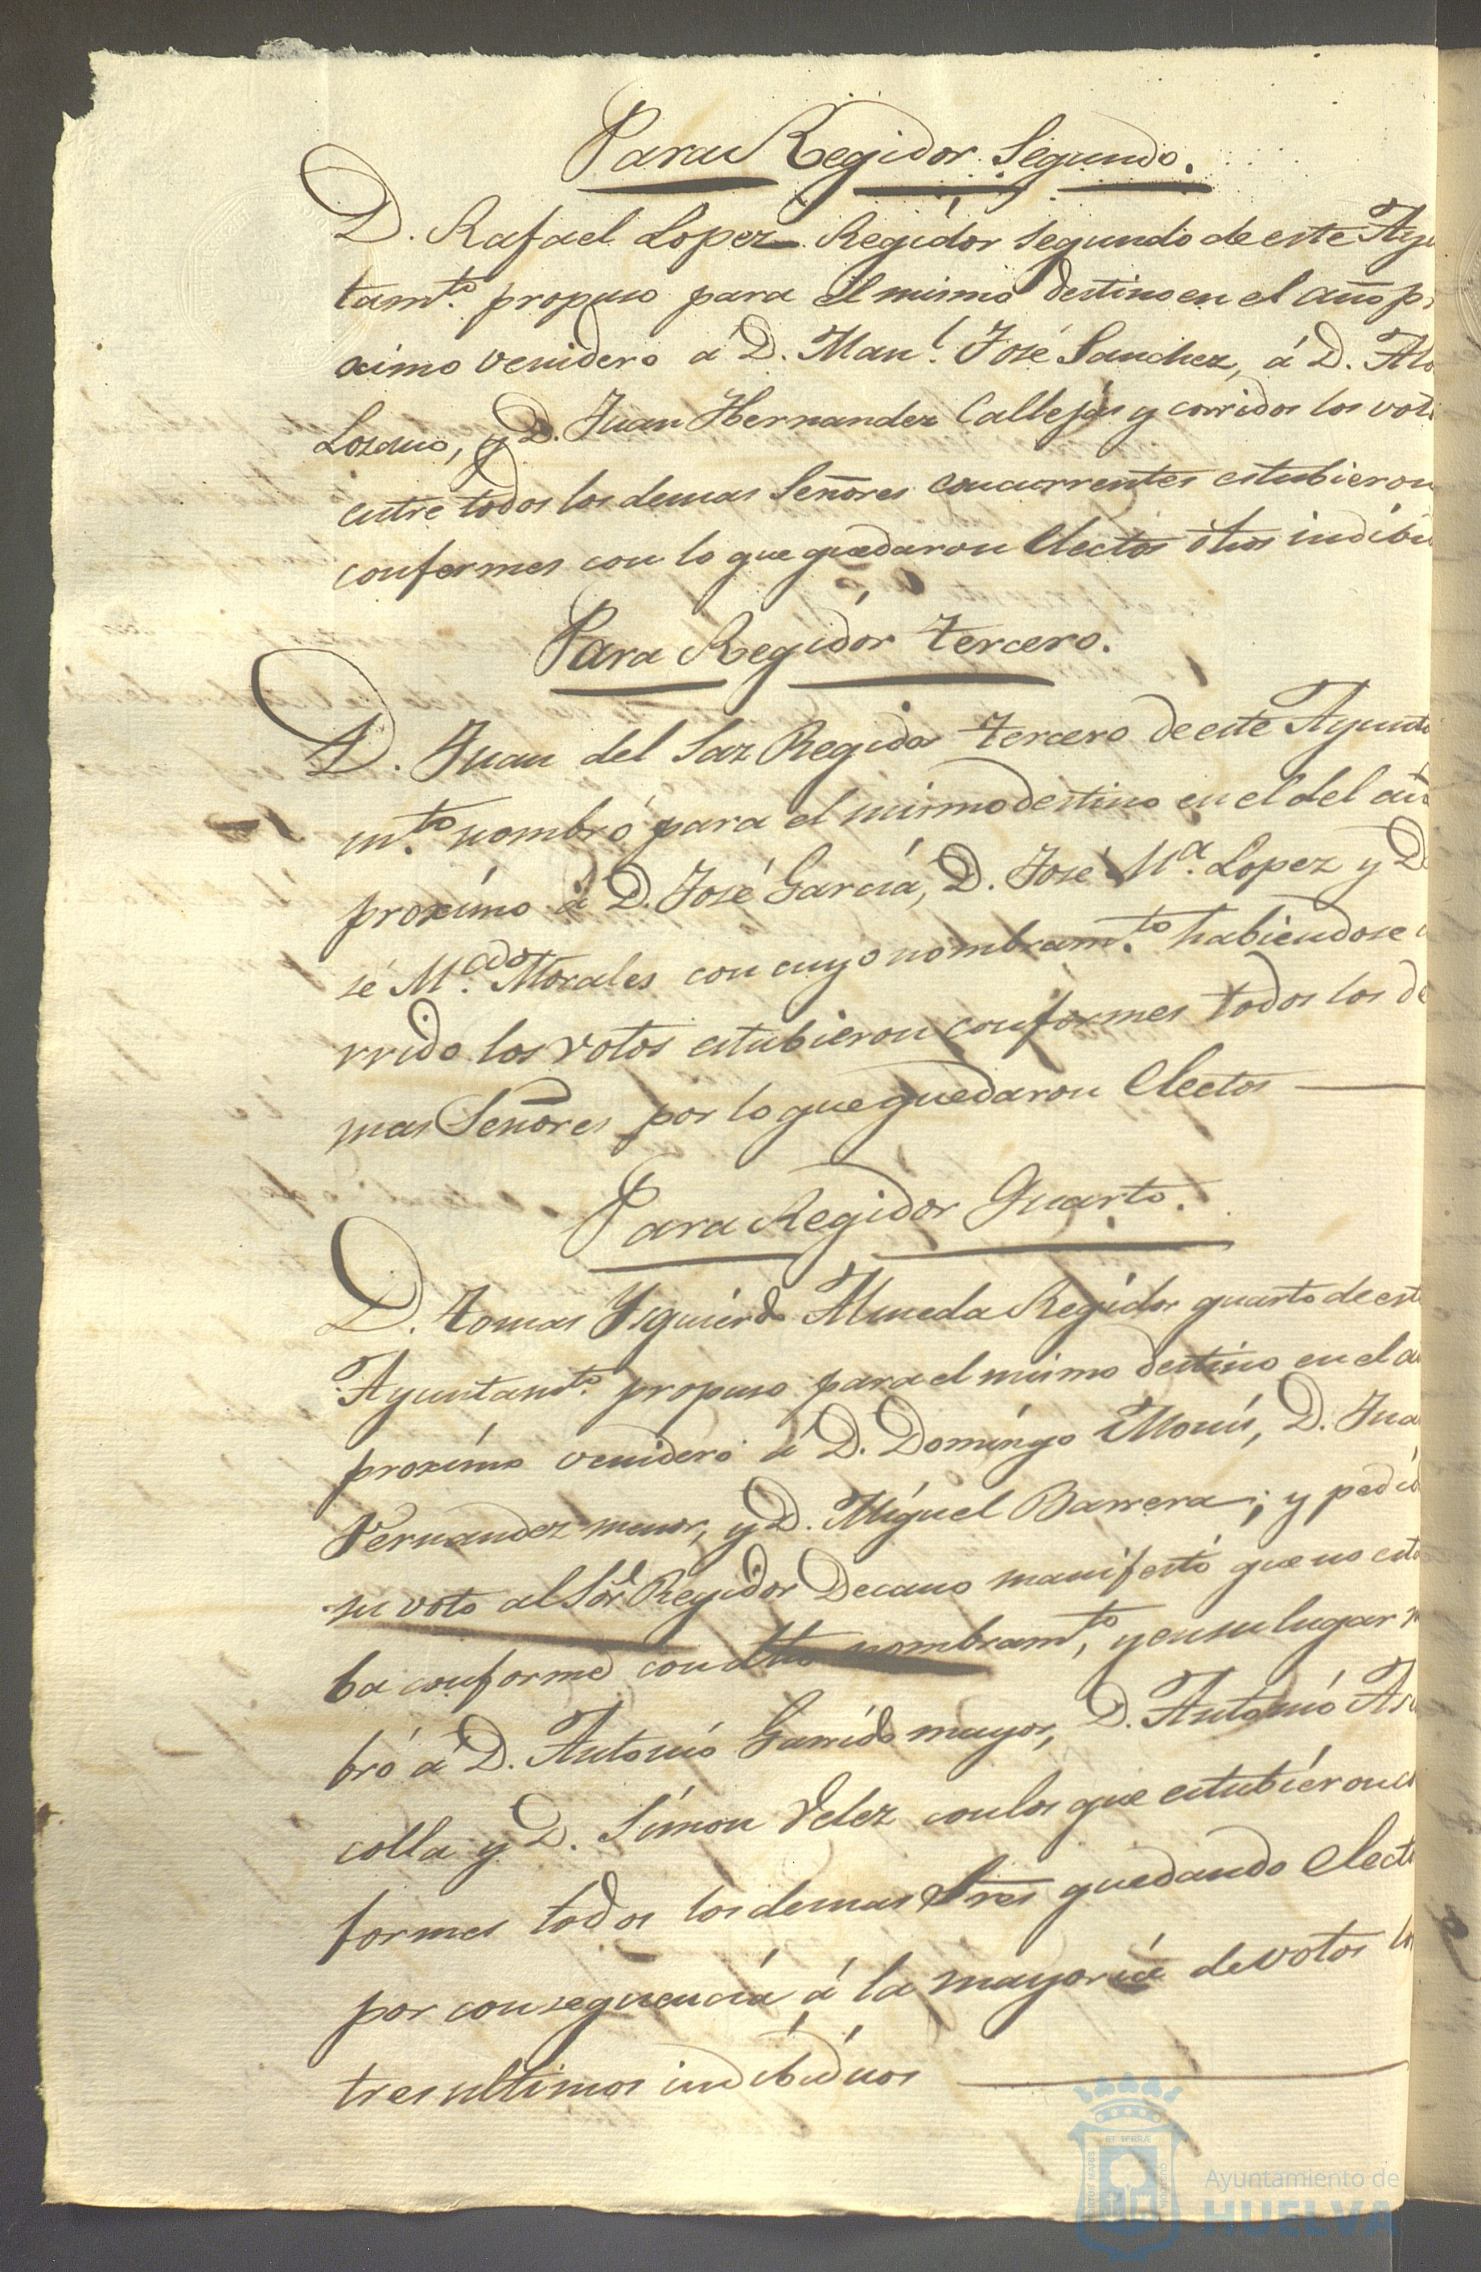 Para Regidor Segundo.
D. Rafael Lopez Regidor Segundo de este Ayu
tamto. propuso para el mismo destino en el año pr
ximo venidero á D. Manl. José Sanchez, á D. Alo
Lozano, y D. Juan Hernandez Callejas y corridos los vot
entre todos los demas Señores concurrentes estubieron
conformes con lo que quedaron electos dhos indibi
Para Regidor tercero.
D. Juan del Saz Regidor tercero de este Ayunta
mto. nombró para el mismo destino en el del añ
proximo á D. José García, D. José Ma. Lopez y D
sé Mcado. Morales con cuyo nombramto. habiendose
rrido los votos estubieron conformes todos los de
mas Señores por lo que quedaron electos
Para Regidor Quarto.
D. Tomas Ysquierdo Almeda Regidor quarto de est
Ayuntamto. propuso para el mismo destino en el a
proximo venidero á D. Domingo Monis, D. Jua
Fernandez menor, y D. Miguel Barrera; y pedid
su voto al Sor. Regidor Decano manifestó que no esta
ba conforme con dho nombramto, y en su lugar n
bró á D. Antonio Garrido mayor, D. Antonio
colla y D. Simon Velez con los que estubieron c
formes todos los demas Sres quedando elect
por consequencia á la mayoría de votos lo
tres ultimos indibiduos
Ayuntamiento de
HUELVA